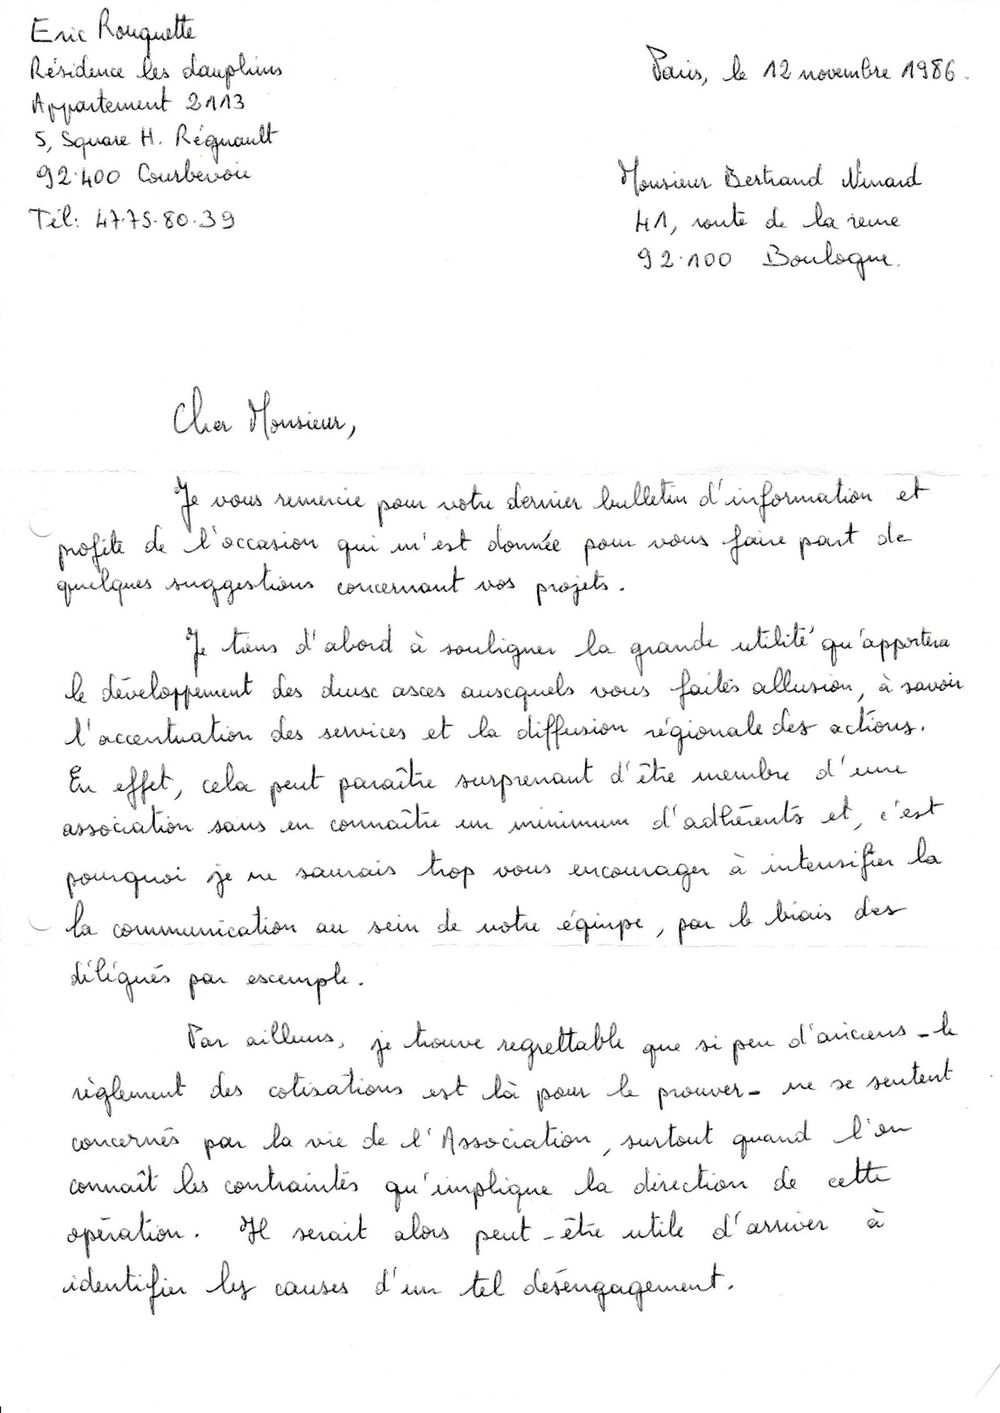 Eric Rouquette
Résidence les dauphins
Appartement 2113
5, Square H. Régnault
92.400 Courbevoie
Tél: 47.75.80.39
Paris, le 12 novembre 1986.
Monsieur Bertrand Ninard
41, route de la reine
92.100 Boulogne.
Cher Monsieur,
Je vous remercie pour votre dernier bulletin d'information et
profite de l'occasion qui m'est donnée pour vous faire part de
quelques suggestions concernant vos projets.
Je tiens d'abord à souligner la grande utilité qu'apportera
le développement des deux axes auxquels vous faites allusion, à savoir
l'accentuation des services et la diffusion régionale des actions.
En effet, cela peut paraître surprenant d'être membre d'une
association sans en connaître un minimum d'adhérents et, c'est
pourquoi je ne saurais trop vous encourager à intensifier la
la communication au sein de votre équipe, par le biais des
délégués par exemple.
Par ailleurs, je trouve regrettable que si peu d'anciens - le
règlement des cotisations est là pour le prouver - ne se sentent
concernés par la vie de l'Association, surtout quand l'on
connaît les contraintes qu'implique la direction de cette
opération. Il serait alors peut-être utile d'arriver à
identifier les causes d'un tel désengagement.